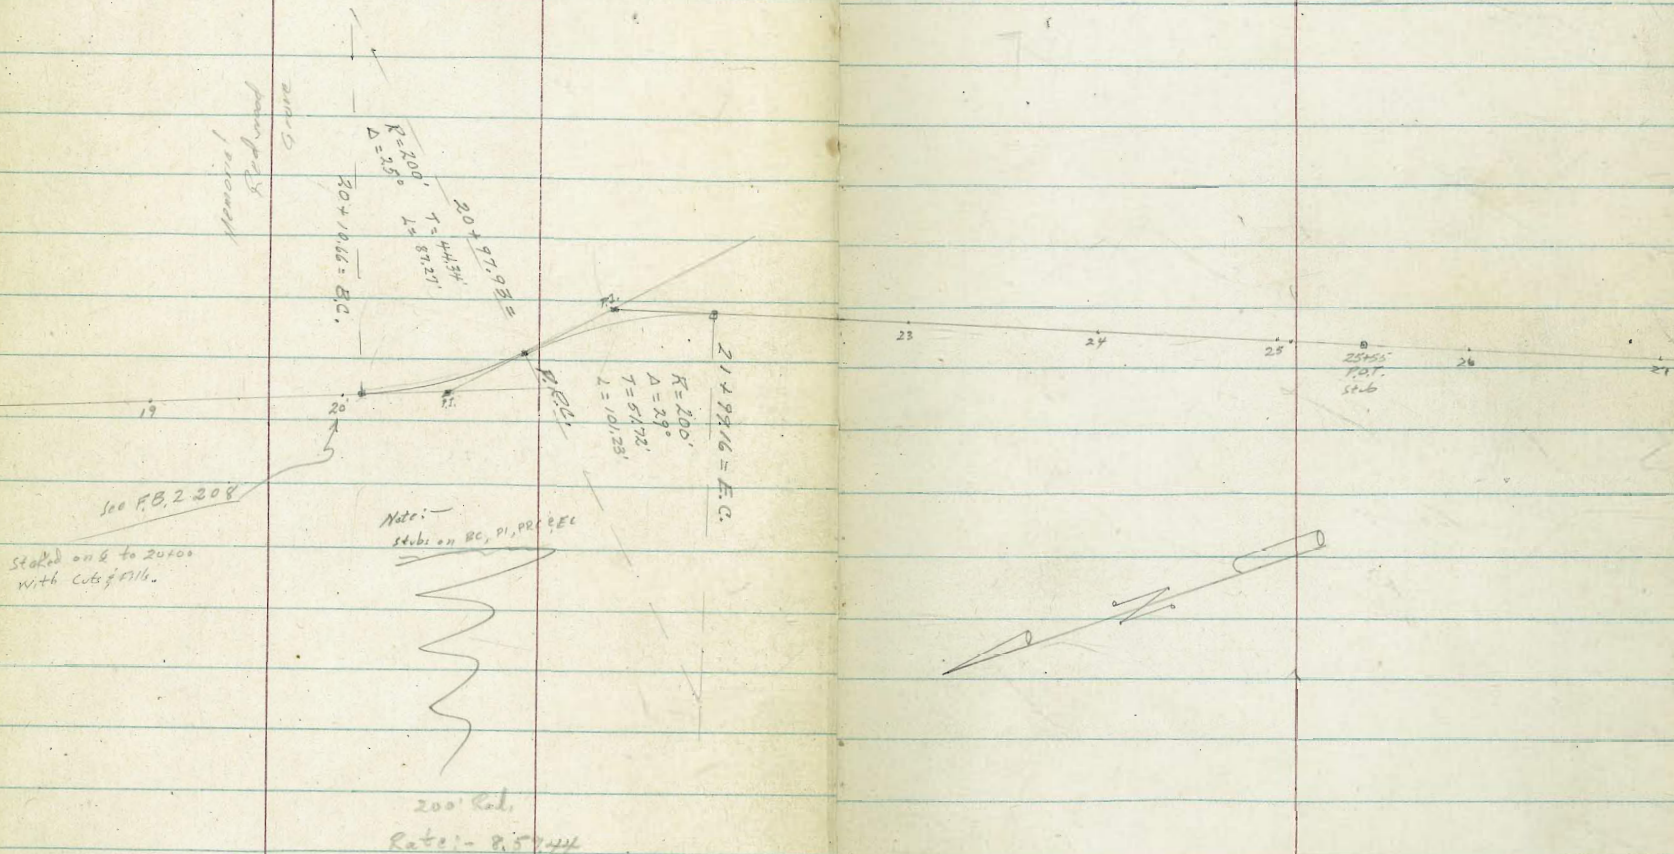 Memorial
Redwood
Grove
20+10.66 = B.C.
R=200'
Δ=25°
T=44.34'
L=87.27'
20+97.93=
P.R.C.
P.I.
P.I.
19
20
21+99.16 = E.C.
R=200'
Δ=29°
T=51.72'
L=101.23'
23
24
25
25+55
P.O.T.
Stub
26
27
See F.B. 2208
Staked on ℄ to 20+00
With Cuts & Fills.
Note:—
Stubs on BC, PI, PRC & EC
200' Rad.
Rate:- 8.5944